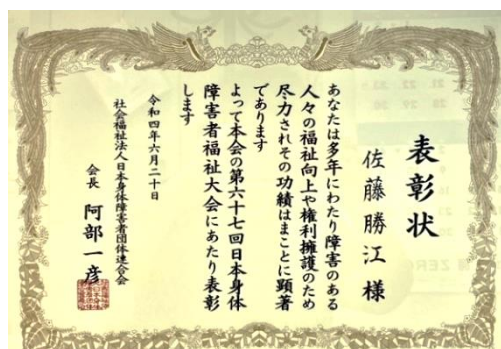 表彰状
佐藤勝江様
あなたは多年にわたり障害のある
人々の福祉向上や権利擁護のため
尽力されその功績はまことに顕著
であります
よって本会の第六十七回日本身体
障害者福祉大会にあたり表彰
します
令和四年六月二十日
社会福祉法人日本身体障害者団体連合会
会長 阿部一彦